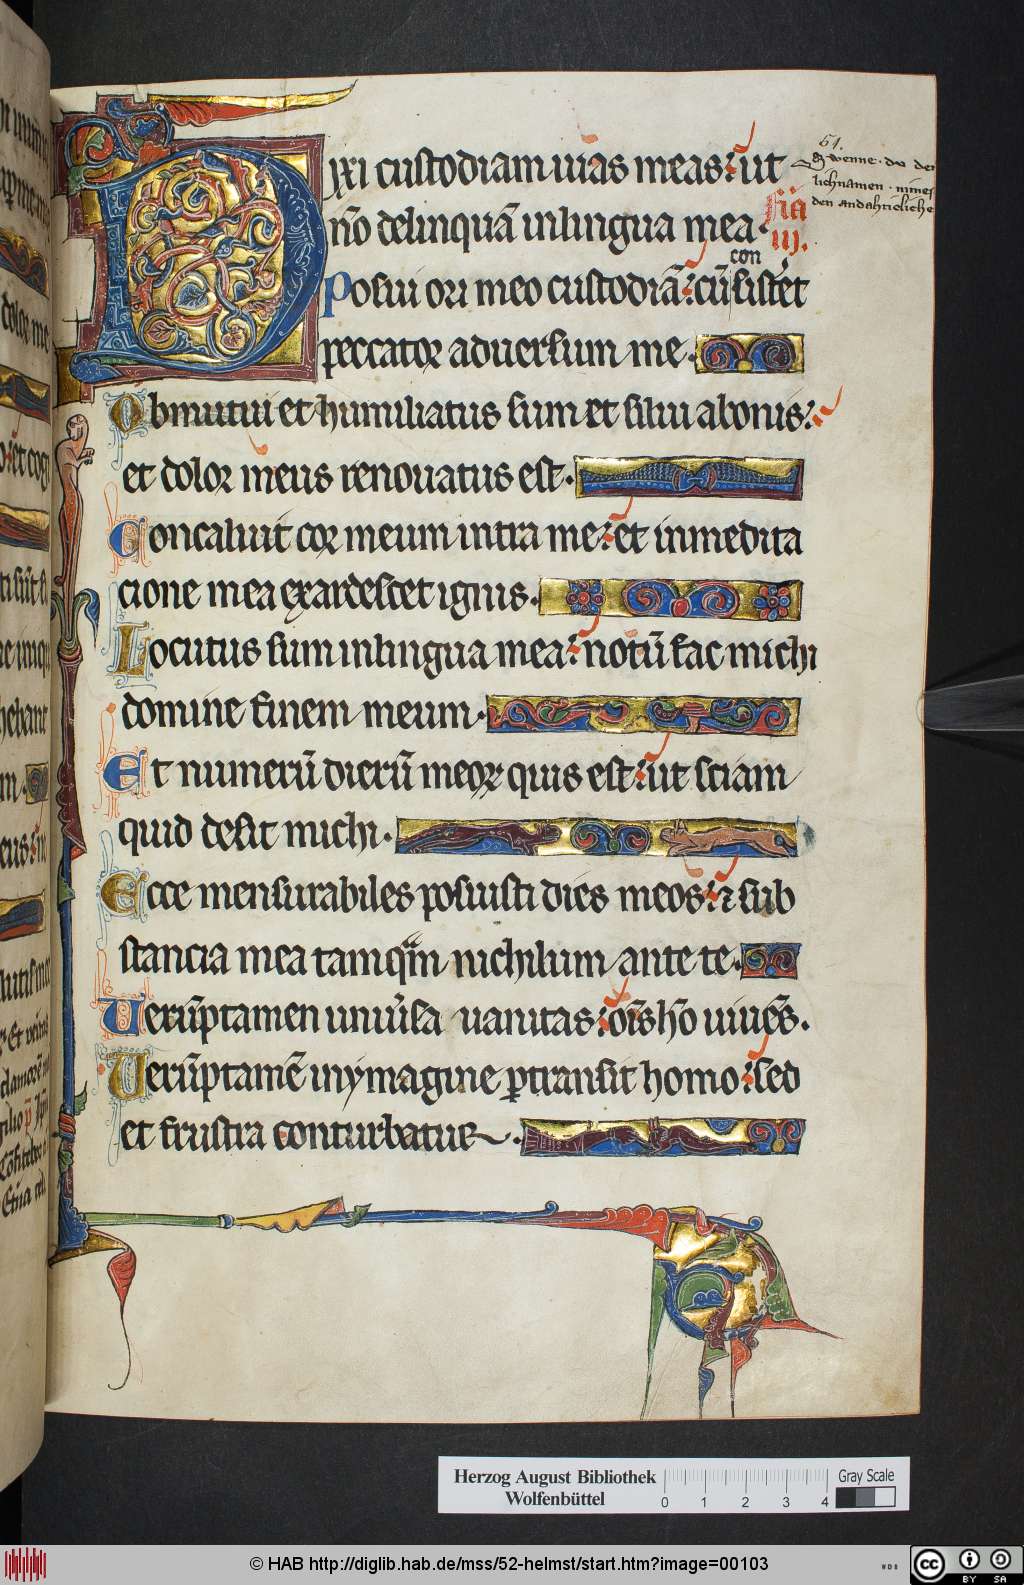 Dyxi custodiam uias meas: ut
nō delinquā inlingua mea
fia
iii.
Posui ori meo custodiā: cū sist͛et
con
peccator aduersum me.
Obmutui et humiliatus sum et silui abonis:
et dolor meus renouatus est.
Concaluit cor meum intra me: et inmedita
cione mea exardescet ignis.
Locutus sum inlingua mea: notū fac michi
domine finem meum.
Et numerū dierū meoꝝ quis est: ut sciam
quid desit michi.
Ecce mensurabiles posuisti dies meos: ⁊ sub
stancia mea tamqᷓm nichilum ante te.
Uerūptamen uniu͛sa uanitas: om̄s hō uiuēs.
Uerūptamē inymagine ꝑtransit homo: sed
et frustra conturbatur.
61.
Swenne du den
lichnamen nimes
den andahticliche
Herzog August Bibliothek
Wolfenbüttel
0 1 2 3 4
Gray Scale
© HAB http://diglib.hab.de/mss/52-helmst/start.htm?image=00103
WDB
cc
BY SA